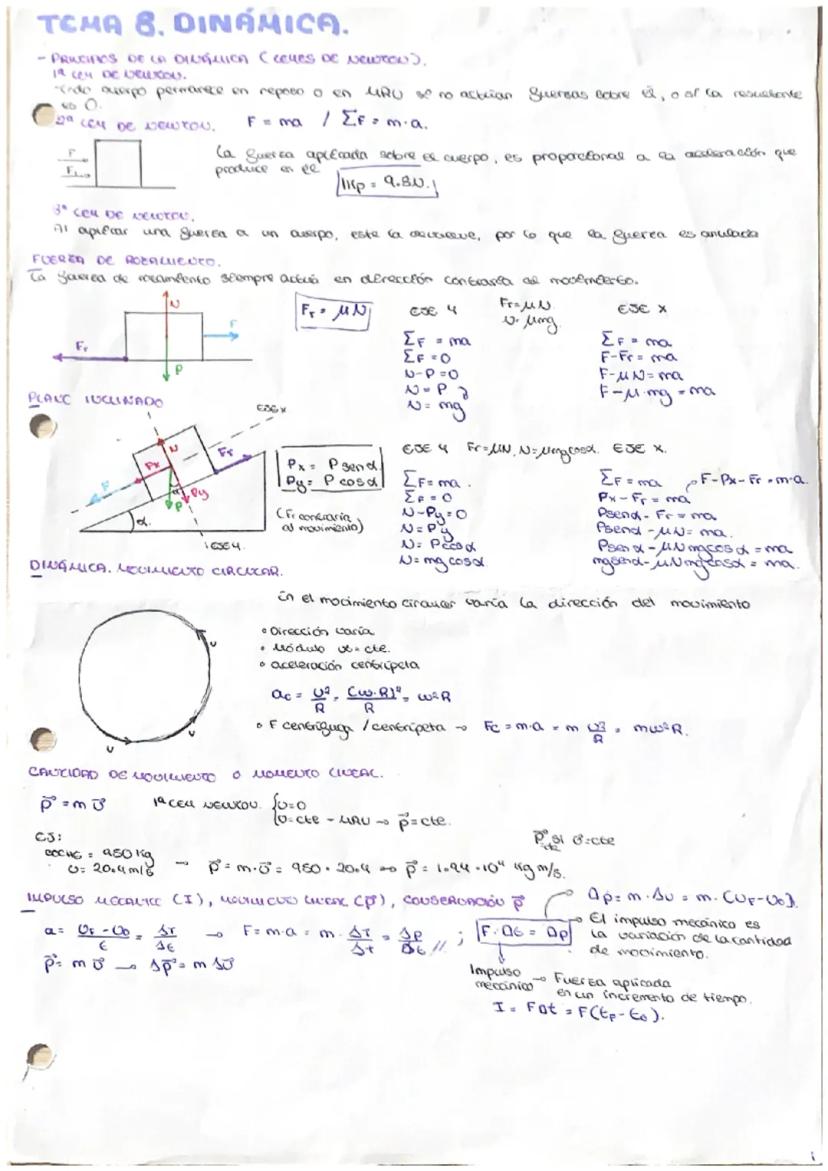 TEMA 8. DINÁMICA.
- PRINCIPIOS DE LA DINÁMICA (LEYES DE NEWTON).
1ª LEY DE NEWTON.
Todo cuerpo permanece en reposo o en MRU si no actúan fuerzas sobre él, o si la resultante
es 0.
2ª LEY DE NEWTON. F = ma / ΣF = m·a.
La fuerza aplicada sobre el cuerpo, es proporcional a la aceleración que
produce en él
F
1Kp = 9.8N.
3ª LEY DE NEWTON.
Al aplicar una fuerza a un cuerpo, este la devuelve, por lo que la fuerza es anulada
FUERZA DE ROZAMIENTO.
La fuerza de rozamiento siempre actúa en dirección contraria al movimiento.
N
F
Fr
P
Fr = μN
EJE Y
Fr = μN
N = μmg.
EJE X
ΣF = ma
ΣF = 0
N-P = 0
N = P
N = mg
ΣF = ma
F-Fr = ma
F-μN = ma
F-μ·mg = ma
PLANO INCLINADO
EJE X
N
Px
Fr
F
α
Py
P
α.
EJE Y.
Px = P senα
Py = P cosα
(Fr contraria
al movimiento)
EJE Y Fr=μN, N=μmgcosα. EJE X.
ΣF = ma.
ΣF = 0
N-Py = 0
N = Py
N = Pcosα
N = mg cosα
ΣF = ma F-Px-Fr = m·a.
Px-Fr = ma
Psenα-Fr = ma
Psenα-μN = ma.
Psenα-μNmgcosα = ma
mgsenα-μNmgcosα = ma.
DINÁMICA. MOVIMIENTO CIRCULAR.
En el movimiento circular varía la dirección del movimiento
• Dirección varía
• Módulo v = cte.
• aceleración centrípeta
ac = v²/R = (w·R)²/R = w²R
• F centrífuga / centrípeta → Fc = m·a = m v²/R = mw²R.
v
v
v
CANTIDAD DE MOVIMIENTO O MOMENTO LINEAL.
p⃗ = m v⃗ 1ª LEY NEWTON. {v=0
v=cte - MRU → p⃗=cte.
p⃗ cte si v⃗=cte
EJ:
COCHE = 950 kg
v = 20.4 m/s → p⃗ = m·v⃗ = 950·20.4 → p⃗ = 1.94·10⁴ kg m/s.
IMPULSO MECÁNICO (I), MOMENTO LINEAL (p⃗), CONSERVACIÓN p⃗
Δp = m·Δv = m·(vF-v0).
a = vF-v0/t = Δv/Δt → F = m·a = m·Δv/Δt = Δp/Δt // ; F·Δt = Δp
El impulso mecánico es
la variación de la cantidad
de movimiento.
p⃗ = m v⃗ → Δp⃗ = m Δv⃗
Impulso
mecánico → Fuerza aplicada
en un incremento de tiempo.
I = FΔt = F(tF-t0).
1